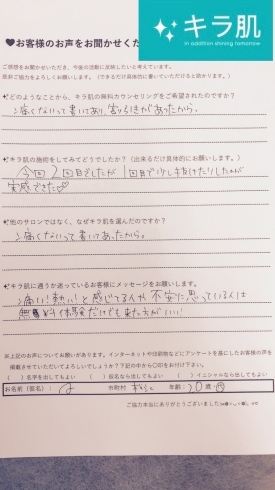 キラ肌
in addition shining tomorrow
♥お客様のお声をお聞かせくだ
ご感想をお聞かせいただき、今後の活動に反映したいと考えています。
是非ご協力をよろしくお願いします。（できるだけ具体的に書いていただけると助かります。）
•どのようなことから、キラ肌の無料カウンセリングをご希望されたのですか？
→痛くないって書いてあり、割り引きがあったから。
•キラ肌の施術をしてみてどうでしたか？（出来るだけ具体的にお願いします。）
今回2回目でしたが1回目で少し抜けたりしたのが
実感できた♡
•他のサロンではなく、なぜキラ肌を選んだのですか？
→痛くないって書いてあったから。
•キラ肌に通うか迷っているお客様にメッセージをお願いします。
→痛い！熱い！と感じてる人や不安に思っている人は
無料体験だけでも来た方がいい！
※上記のお声についてお願いがあります。インターネットや印刷物などにアンケートを基にしたお客様の声を
掲載させていただいてよろしいでしょうか？下記の中から〇印をお付け下さい。
（　）名字を出してもよい　（　）仮名なら出してもよい　（　）イニシャルなら出してもよい
お名前（仮名）： 市町村 年齢：20歳
ご協力本当にありがとうございました